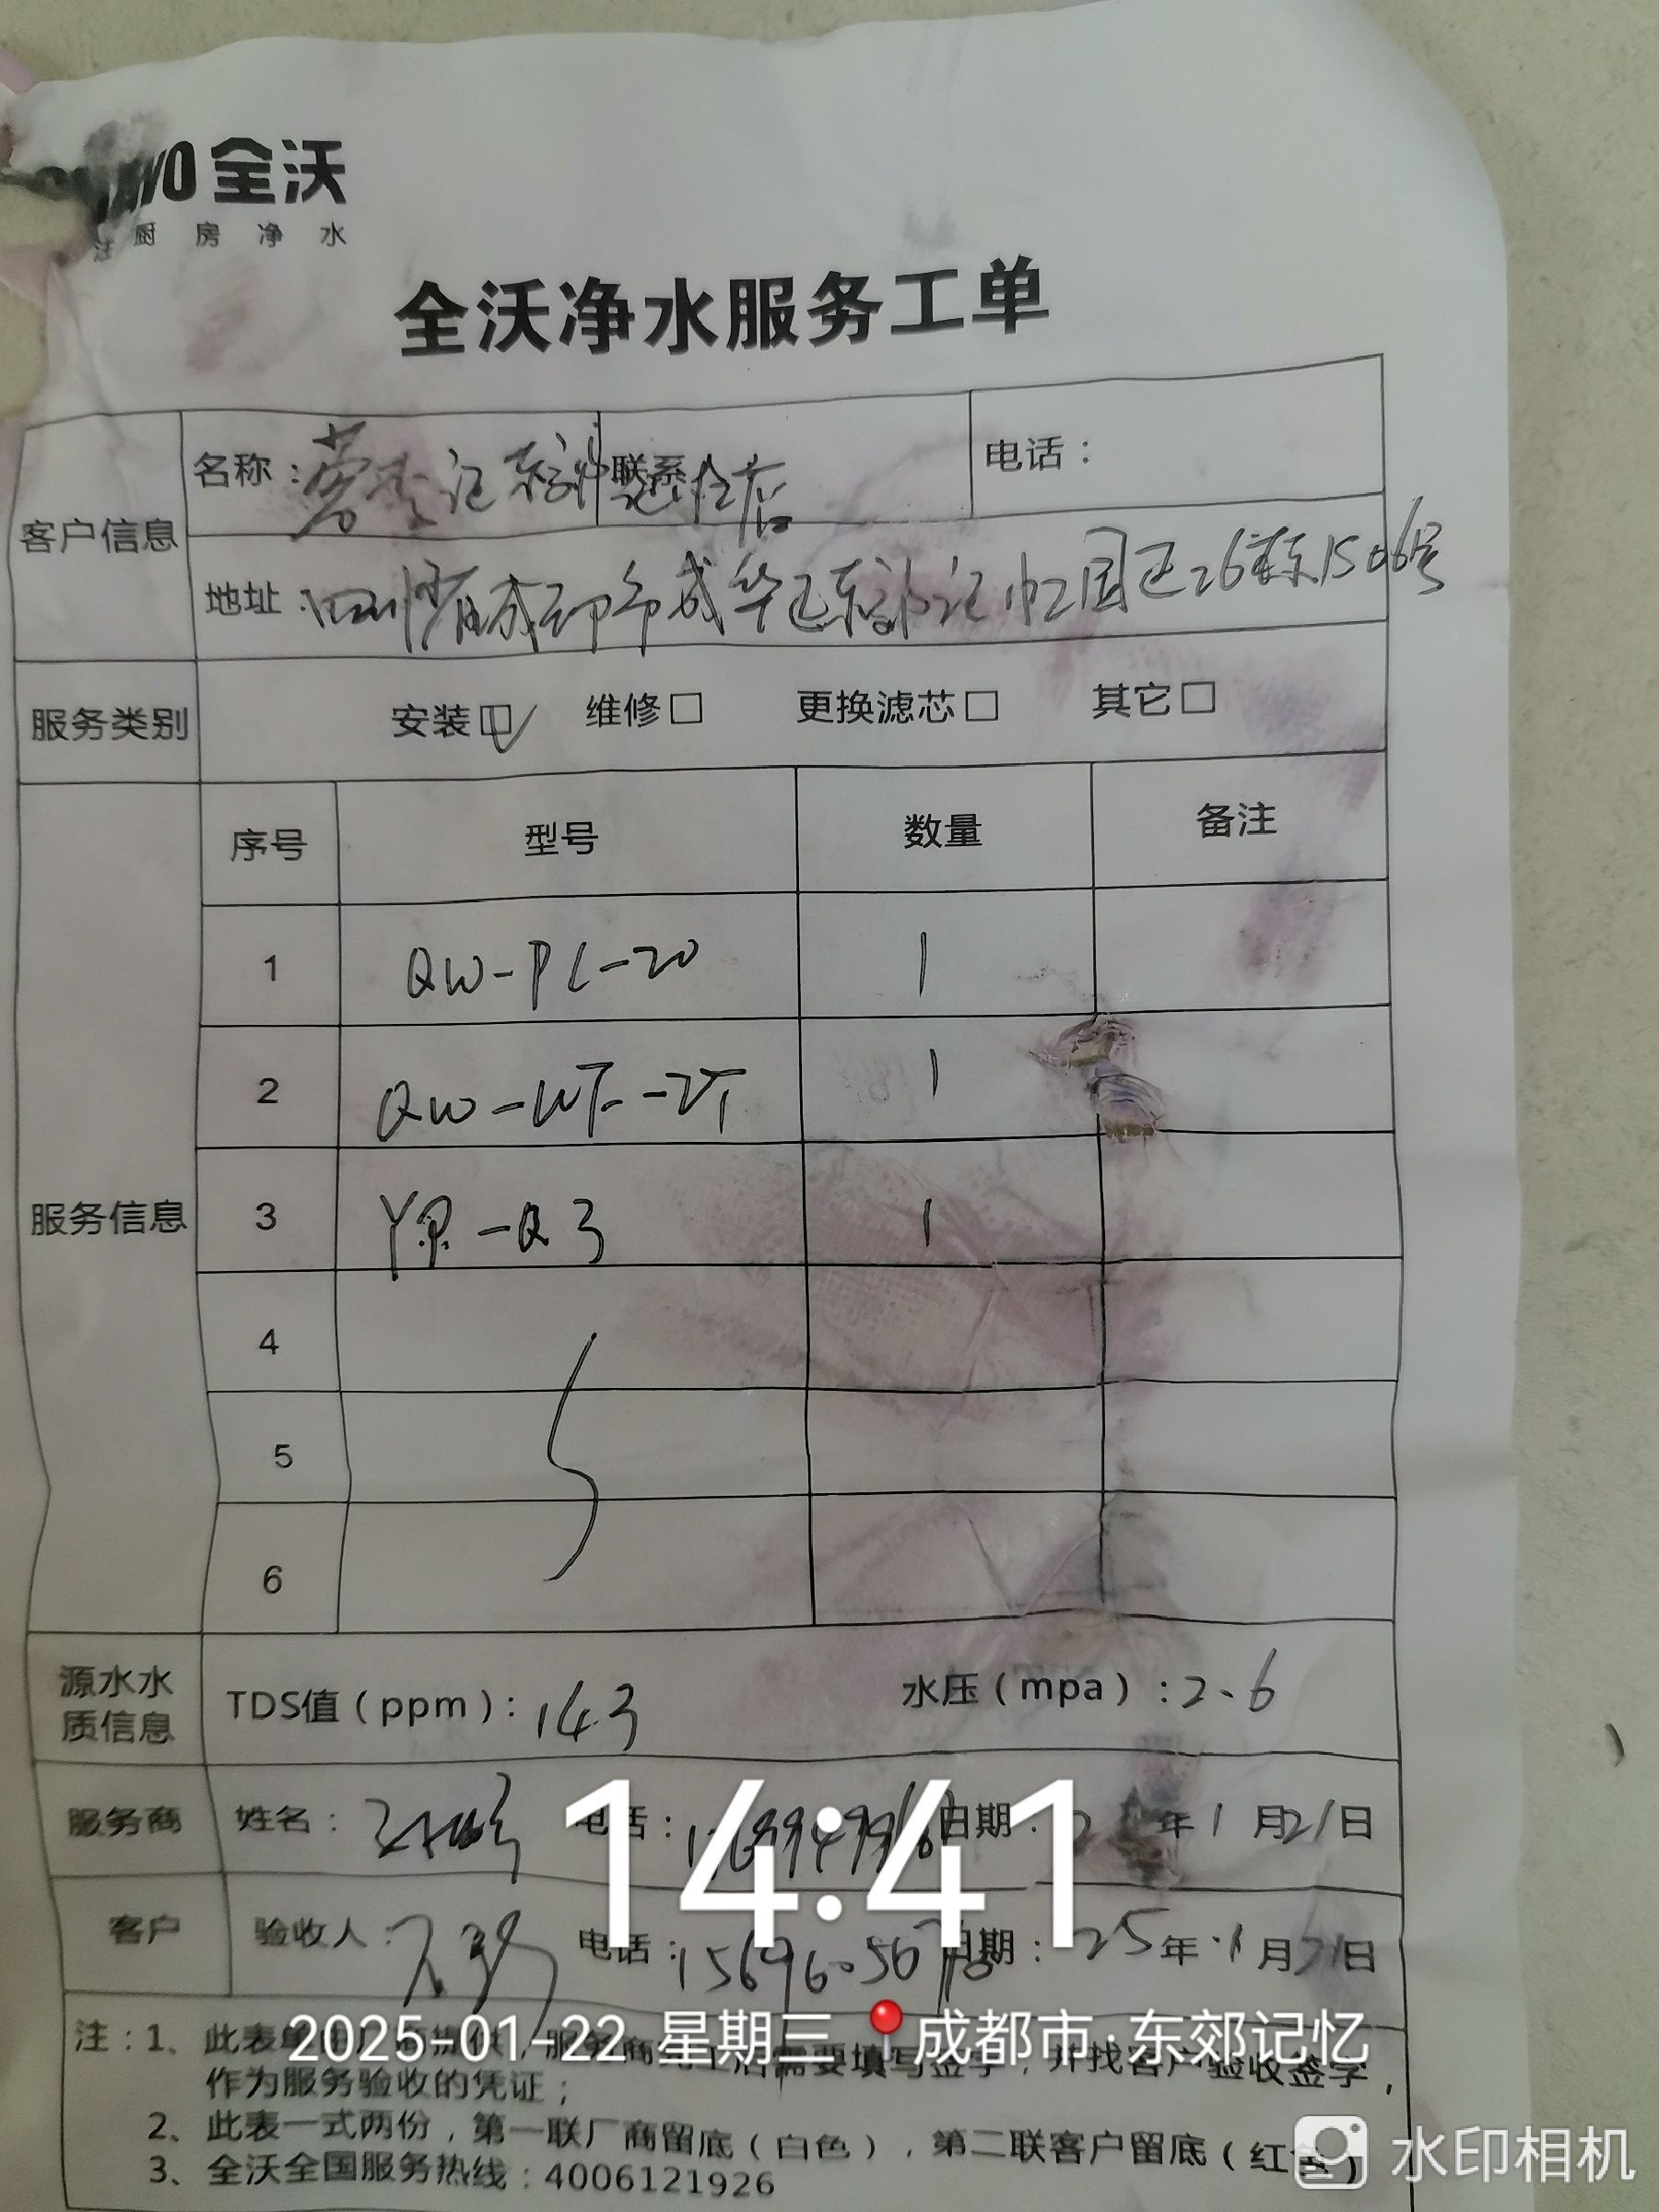 全沃
厨房净水
全沃净水服务工单
客户信息
名称: 记东郊记忆店
联系
电话:
地址: 四川省成都市成华区东郊记忆园区26栋1506号
服务类别 安装☑ 维修□ 更换滤芯□ 其它□
服务信息
序号 型号 数量 备注
1 QW-PL-20 1
2 QW-WT-2T 1
3 YR-Q3 1
4
5
6
源水水质信息 TDS值(ppm): 143 水压(mpa): 2.6
服务商 姓名: 电话: 日期: 年1月21日
客户 验收人: 电话: 日期: 25年1月21日
14:41
2025-01-22 星期三 成都市·东郊记忆
注:1、此表单 提供,服务商 后需要填写签字,并找客户验收签字,
作为服务验收的凭证;
2、此表一式两份,第一联厂商留底(白色),第二联客户留底(红色)
3、全沃全国服务热线:4006121926
水印相机